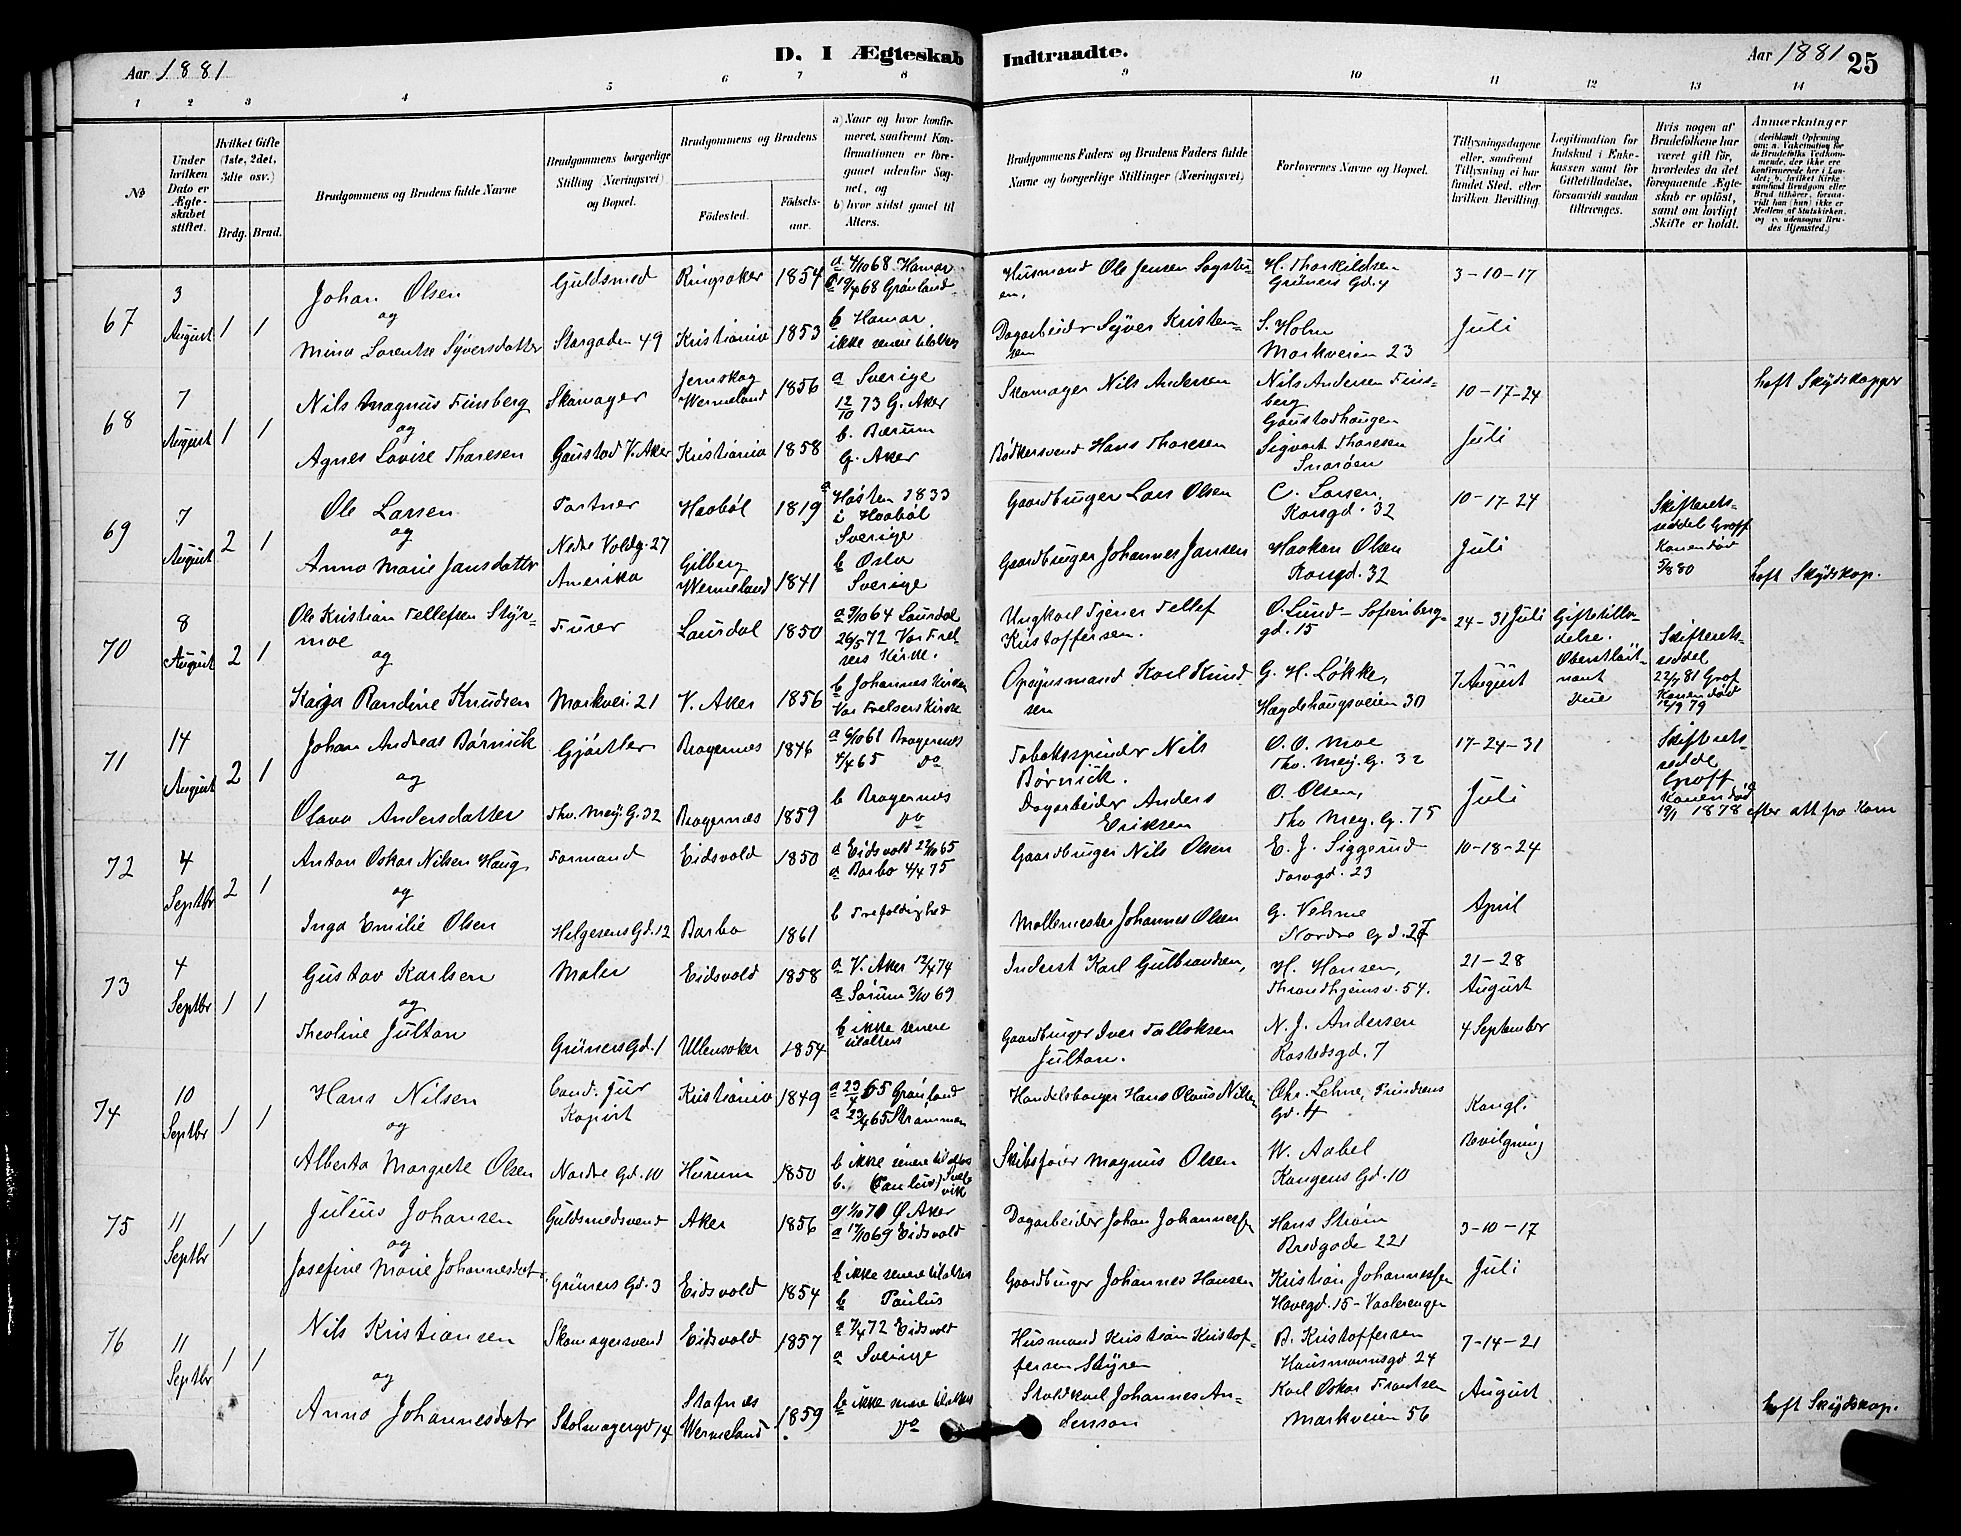 D. I Ægteskab Indtraadte.
Aar 1881
Aar 1881
25
1 2 3 4 5 6 7 8 9 10 11 12 13 14
No
Under hvilken Dato er Ægteskabet stiftet.
Hvilket Gifte (1ste, 2det, 3dte osv.)
Brdg. Brud.
Brudgommens og Brudens fulde Navne
Brudgommens borgerlige Stilling (Næringsvei) og Bopæl.
Brudgommens og Brudens
Födested.
Födsels-aar.
a) Naar og hvor konfirmeret, saafremt Konfirmationen er foregaaet udenfor Sognet, og
b) hvor sidst gaaet til Alters.
Brudgommens Faders og Brudens Faders fulde Navne og borgerlige Stillinger (Næringsvei)
Forlovernes Navne og Bopæl.
Tillysningsdagene eller, saafremt Tillysning ei har fundet Sted, efter hvilken Bevilling.
Legitimation for Indskud i Enkekassen samt for Giftetilladelse, forsaavidt saadan tiltrænges.
Hvis nogen af Brudefolkene har været gift før, hvorledes da det foregaaende Ægteskab er oplöst, samt om lovligt Skifte er holdt.
Anmærkninger
(deriblandt Oplysning om: a. Vakcination for de Brudefolks Vedkommende, der ikke ere konfirmerede her i Landet; b. hvilket Kirkesamfund Brudgom eller Brud tilhører, forsaavidt han (hun) ikke er Medlem af Statskirken, og c. udensogns Brudes Hjemsted.)
67
3 August
1 1
Johan Olsen
og
Mina Lorentse Syversdatter
Guldsmed
Storgaden 49
Ringsaker 1854
Kristiania 1853
Hamar
Grønland
b Hamar
ikke senere til alters
Husmand Ole Jensen
Dagarbeider Syver Kristensen
H. Thorkildsen
Grüners Gd. 4
S. Holm
Markveien 23
3-10-17
Juli
68
7 August
1 1
Nils Magnus Finsberg
og
Agnes Lovise Thoresen
Skomager
Gaustad V. Aker
Jernskog
Wermeland 1856
Kristiania 1858
a Sverige
12/10 73 G. Aker
b. Bærum
G. Aker
Skomager Nils Andersen
Bødkersvend Hans Thoresen
Nils Andersen Finsberg
Gaustadhaugen
Sigvart Thoresen
Snarøen
10-17-24
Juli
haft Skydskopper
69
7 August
2 1
Ole Larsen
og
Anna Marie Jansdatter
Gartner
Nedre Voldg. 27
Amerika
Haabøl 1819
Gilberg
Wermeland 1841
a Høsten 1833
i Haabøl
Sverige
b Oslo
Sverige
Gaardbruger Lars Olsen
Gaardbruger Johannes Jansen
C. Larsen
Korsgd. 32
Haakon Olsen
Korsgd. 32
10-17-24
Juli
Skifteretsseddel Groff
Konen død
5/8 80
haft Skydskop.
70
8 August
2 1
Ole Kristian Tellefsen Styrmoe
og
Kaja Randine Knudsen
Furer
Markvei. 21
Laurdal 1850
V. Aker 1856
Laurdal
26/5 72 Vor Frelsers Kirke.
b Johannes Kirken
Vor Frelsers Kirke
Ungkarl Tjener Tellef Kristoffersen.
Opsynsmand Karl Knudsen
O. Lund - Sofienberggd. 15
G. H. Løkke,
Hægdehaugsveien 30
24-31 Juli
7 August
Giftetilladelse.
Oberstløitnant
Due
Skifteretsseddel
22/7 81 Grof
Konen død
12/9 79
71
14 August
2 1
Johan Andreas Børnick
og
Olava Andersdatter
Gjørtler
Thv. Mey. G. 32
Bragernes 1846
Bragernes 1859
Bragernes
do
b Bragernes
do
Tobaksspinder Nils Børnick.
Dagarbeider Anders Eriksen
O. O. Moe
Thv. Mey. G. 32
O. Olsen,
Thv Mey. G. 75
17-24-31
Juli
Skifteretsseddel
Groff
Konen død
19/1 1878
efter att fra Kom
72
4 Septbr
2 1
Anton Oskar Nilsen Haug
og
Inga Emilie Olsen
Formand
Helgesens Gd. 12
Eidsvold 1850
Barbo 1861
a Eidsvold
a Barbo 4/4 75
b Trefoldighed
Gaardbruger Nils Olsen
Møllemester Johannes Olsen
E. J. Siggerud
Torvgd. 23
G. Vehme
Nordre Gd. 27
10-18-24
April
73
4 Septbr
1 1
Gustav Karlsen
og
Theoline Jultan
Maler
Grüners Gd. 1
Eidsvold 1858
Ullensaker 1854
a V. Aker 12/4 74
a Sørum 3/10 69
b ikke senere
til alters
Inderst Karl Gulbrandsen,
Gaardbruger Iver Talloksen
Jultan.
H. Hansen,
Throndhjemsv. 54.
N. J. Andersen
Rostedsgd. 7
21-28
August
4 September
74
10 Septbr
1 1
Hans Nilsen
og
Alberta Margrete Olsen
Cand. Jur
Kopiist
Nordre Gd. 10
Kristiania 1849
Hurum 1850
a 23/4 65 Grønland
a 23/4 65 Strømmen
b ikke senere til alters
b. Paulus
Handelsborger Hans Olaus Nilsen
Skibsfører Magnus Olsen
Chr. Lehne,
Gd. 4
W. Aabel
Kongens Gd. 10
Kongl.
Bevilgning
75
11 Septbr
1 1
Julius Johansen
og
Josefine Marie Johannesdatr
Guldsmedsvend
Grüners Gd. 3
Aker 1856
Eidsvold 1854
a 1/10 71 Ø Aker
a 17/10 69 Eidsvold
b ikke senere til alters
b Paulus
Dagarbeider Johan Johannessen
Gaardbruger Johannes Hansen
Hans Strøm
Bredgade 221
Kristian Johannessen
Havegd. 15 - Vaalerengen
3-10-17
Juli
76
11 Septbr
1 1
Nils Kristiansen
og
Anna Johannesdatr
Skomagersvend
Stolmagergd 14
Eidsvold 1857
Stafnæs
Wermeland 1859
a 7/4 72 Eidsvold
a Sverige
b ikke senere til alters
do
Husmand Kristian Kristoffersen Styren
Staldkarl Johannes Andersson
B. Kristoffersen
Hausmannsgd 24
Karl Oskar Frantsen
Markveien 56
7-14-21
August
haft Skydskop.